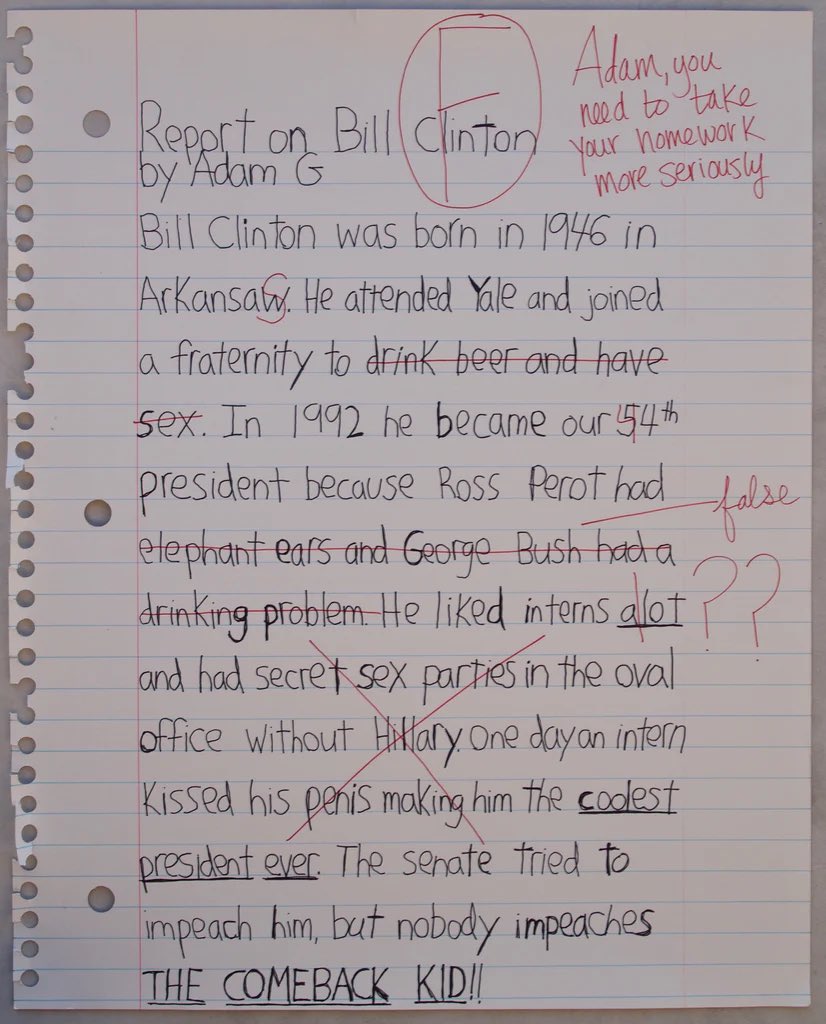 F
Adam, you
need to take
your homework
more seriously
Report on Bill Clinton
by Adam G
Bill Clinton was born in 1946 in
Arkansaw. He attended Yale and joined
s
a fraternity to drink beer and have
sex. In 1992 he became our 54th
president because Ross Perot had
false
elephant ears and George Bush had a
drinking problem. He liked interns alot
??
and had secret sex parties in the oval
office without Hillary. One day an intern
kissed his penis making him the coolest
president ever. The senate tried to
impeach him, but nobody impeaches
THE COMEBACK KID!!